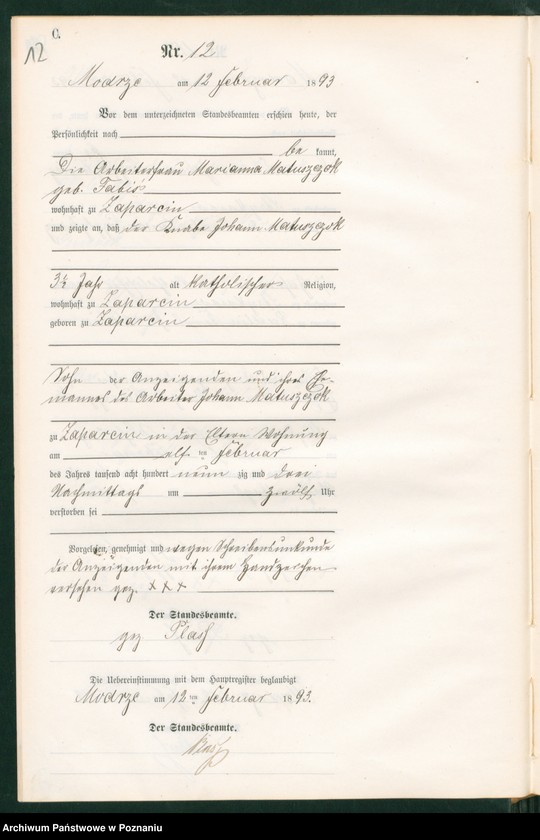 C.
12
Nr. 12
Modrze am 12 Februar 1893
Vor dem unterzeichneten Standesbeamten erschien heute, der
Persönlichkeit nach
be kannt,
Die Arbeiterfrau Marianna Matuszczak
geb. Fabis
wohnhaft zu Zaparcin
und zeigte an, daß der Knabe Johann Matuszczak
3½ Jahr alt katholischer Religion,
wohnhaft zu Zaparcin
geboren zu Zaparcin
Sohn der Anzeigenden und ihres Ehe-
mannes des Arbeiter Johann Matuszczak
zu Zaparcin in der Eltern Wohnung
am elf ten Februar
des Jahres tausend acht hundert neun zig und drei
Nachmittags um zwölf Uhr
verstorben sei
Vorgelesen, genehmigt und wegen Schreibensunkunde
der Anzeigenden mit ihrem Handzeichen
versehen gez. + + +
Der Standesbeamte.
gez
Die Uebereinstimmung mit dem Hauptregister beglaubigt
Modrze am 12 ten Februar 1893.
Der Standesbeamte.
Archiwum Państwowe w Poznaniu